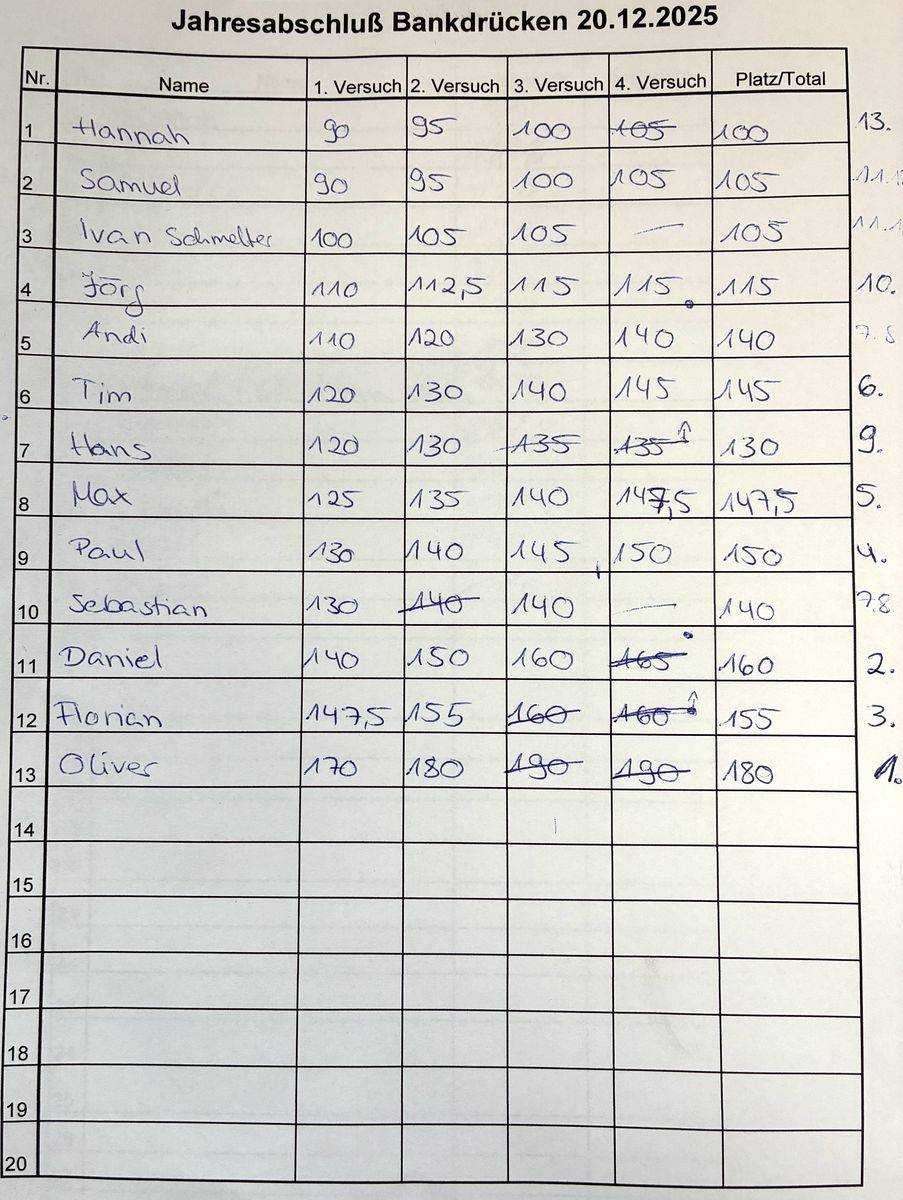 Jahresabschluß Bankdrücken 20.12.2025
Nr. Name 1. Versuch 2. Versuch 3. Versuch 4. Versuch Platz/Total
1 Hannah 90 95 100 105 100 13.
2 Samuel 90 95 100 105 105 11.1
3 Ivan Schmelter 100 105 105 — 105 11.1
4 Jörg 110 112,5 115 115 115 10.
5 Andi 110 120 130 140 140 7.8
6 Tim 120 130 140 145 145 6.
7 Hans 120 130 135 135 ↑ 130 9.
8 Max 125 135 140 147,5 147,5 5.
9 Paul 130 140 145 150 150 4.
10 Sebastian 130 140 140 — 140 7.8
11 Daniel 140 150 160 165 160 2.
12 Florian 147,5 155 160 160 ↑ 155 3.
13 Oliver 170 180 190 190 180 1.
14
15
16
17
18
19
20